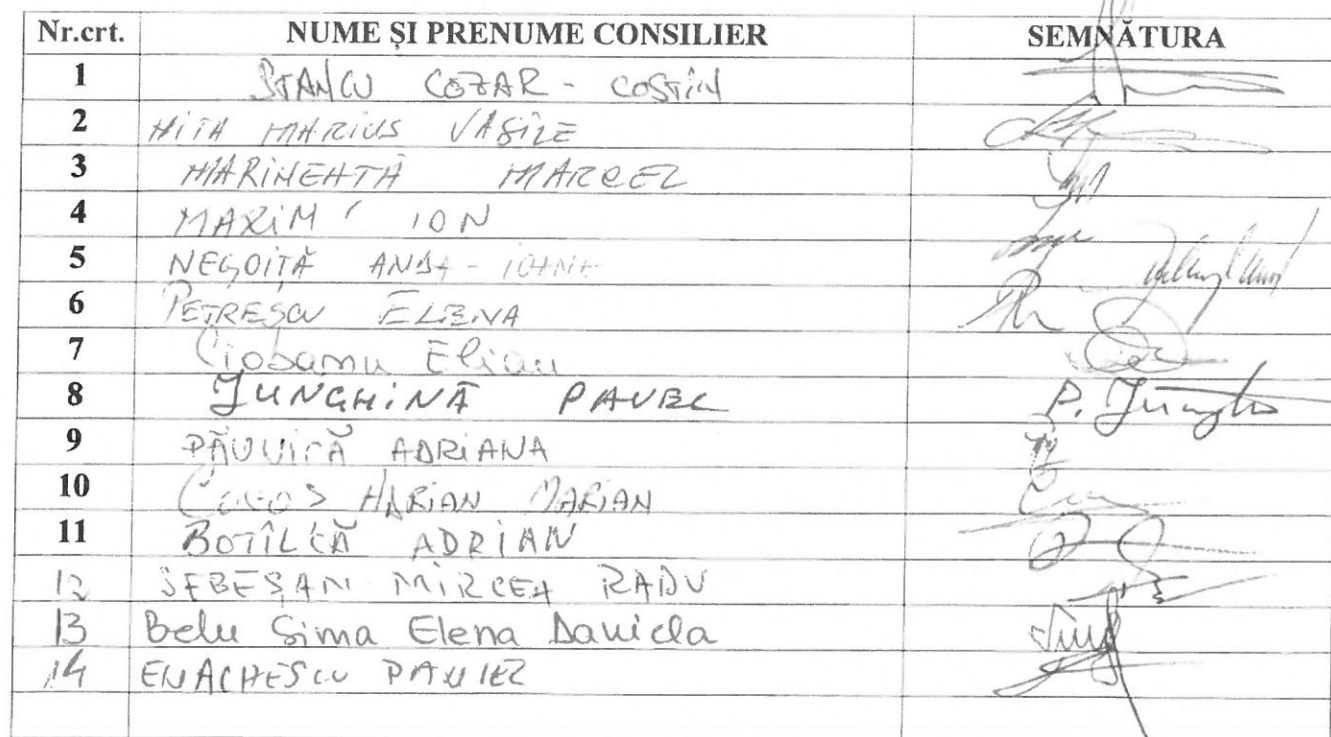 Nr.crt. NUME ȘI PRENUME CONSILIER SEMNĂTURA
1 STANCU COZAR - COSTIN
2 NIȚĂ MARIUS VASILE
3 MARINEAȚĂ MARCEL
4 MAXIM ION
5 NEGOIȚĂ ANDA - IOANA
6 PETRESCU ELENA
7 Ciobanu Elian
8 JUNGHINĂ PAVEL P. Jungh
9 ADRIANA
10 MARIAN
11 BOTÎLCĂ ADRIAN
12 SEBEȘAN MIRCEA RADU
13 Belu Sima Elena Daniela
14 ENACHESCU DANIEL